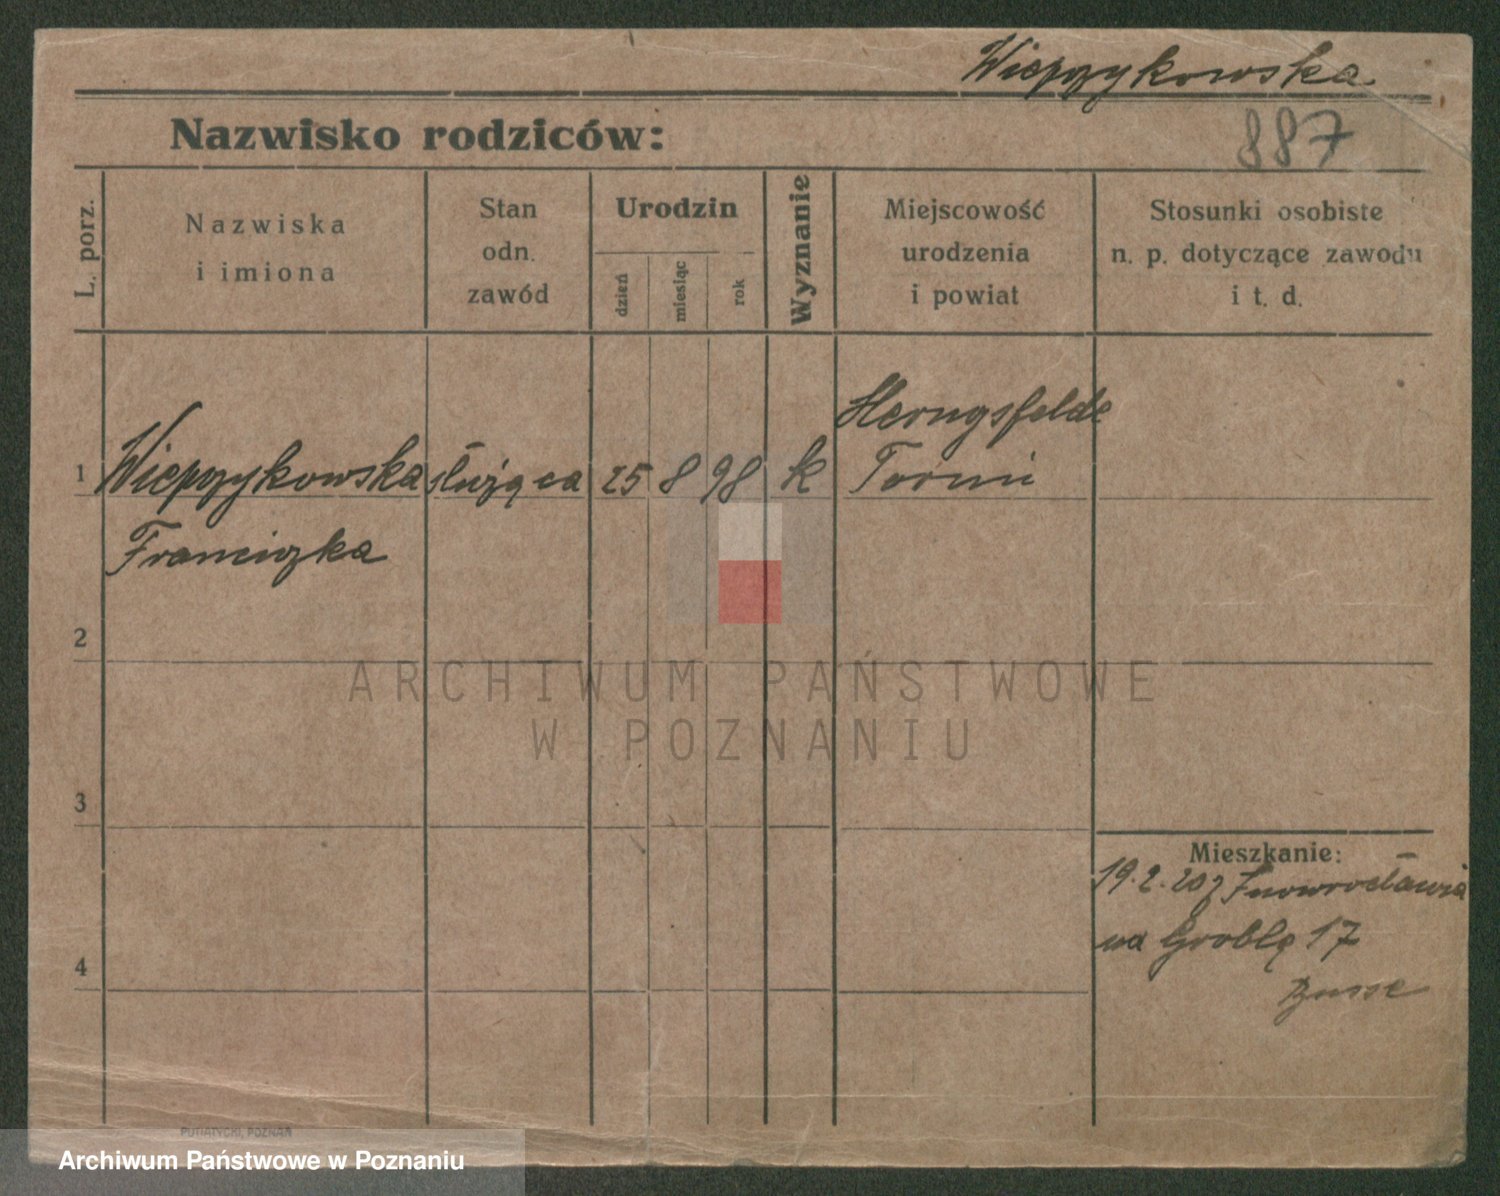 Wiepzykowska
Nazwisko rodziców:
887
L. porz.
Nazwiska
i imiona
Stan
odn.
zawód
Urodzin
dzień
miesiąc
rok
Wyznanie
Miejscowość
urodzenia
i powiat
Stosunki osobiste
n. p. dotyczące zawodu
i t. d.
1
Wiepzykowska
Franciszka
służąca
25
8
98
k
Toruń
2
3
4
Mieszkanie:
19.2.20 z Inowrocławia
na Groblę 17
PUTIATYCKI, POZNAŃ
ARCHIWUM PAŃSTWOWE
W POZNANIU
Archiwum Państwowe w Poznaniu